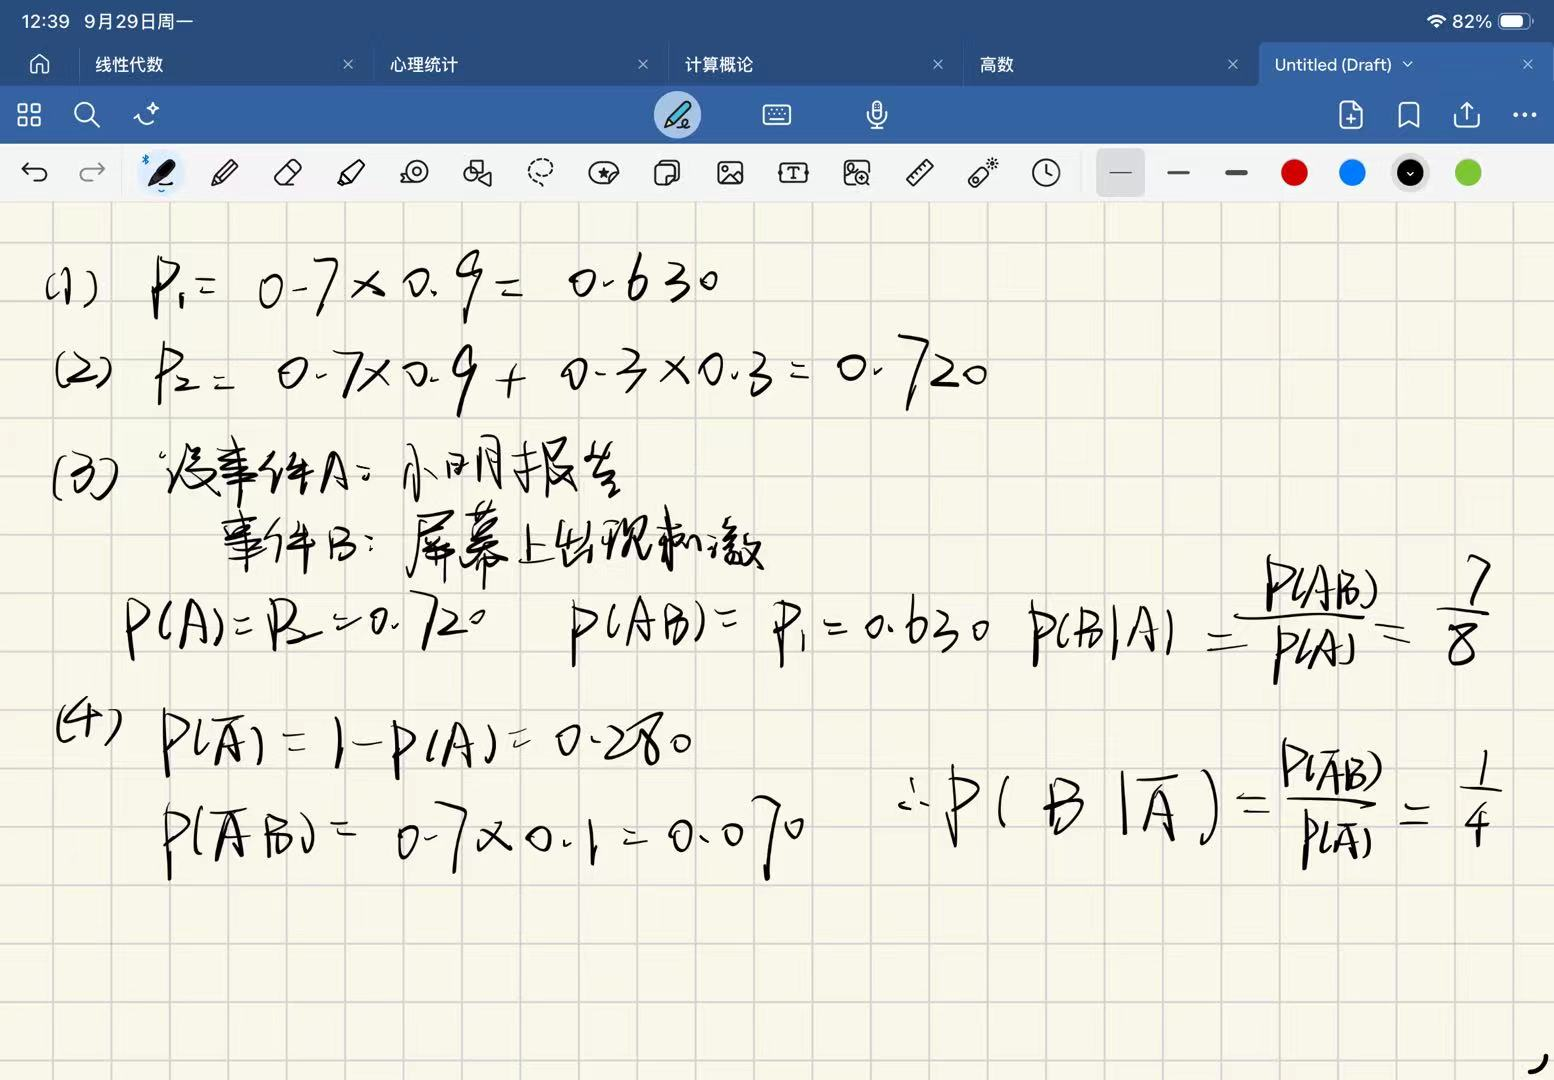 12:39 9月29日周一
82%
线性代数
心理统计
计算概论
高数
Untitled (Draft)
(1) P₁= 0.7×0.9= 0.630
(2) P₂= 0.7×0.9 + 0.3×0.3= 0.720
(3) 设事件A: 小明报告
事件B: 屏幕上出现刺激
P(A)=P₂=0.720 P(AB)= P₁=0.630 P(B|A) = P(AB)/P(A) = 7/8
(4) P(A̅)=1-P(A)=0.280
P(A̅B)= 0.7×0.1=0.070 ∴P(B|A̅)= P(A̅B)/P(A̅) = 1/4